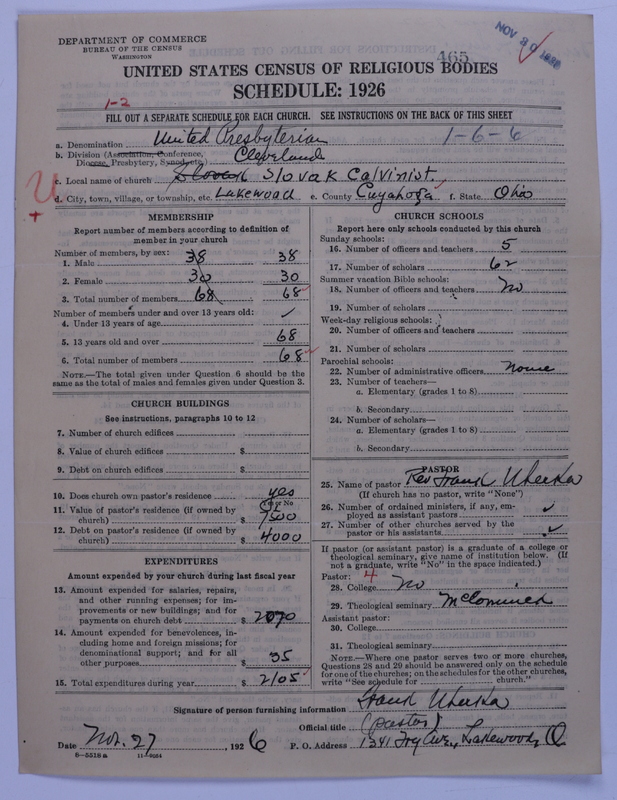 DEPARTMENT OF COMMERCE
BUREAU OF THE CENSUS
WASHINGTON
465
NOV 30 1926
UNITED STATES CENSUS OF RELIGIOUS BODIES
SCHEDULE: 1926
1-2
FILL OUT A SEPARATE SCHEDULE FOR EACH CHURCH. SEE INSTRUCTIONS ON THE BACK OF THIS SHEET
a. Denomination United Presbyterian 1-6-6
b. Division (Association, Conference, Diocese, Presbytery, Synod, etc.) Cleveland
c. Local name of church Slovak Slovak Calvinist
d. City, town, village, or township, etc. Lakewood e. County Cuyahoga f. State Ohio
MEMBERSHIP
Report number of members according to definition of
member in your church
Number of members, by sex:
1. Male 38 38
2. Female 30 30
3. Total number of members 68 68
Number of members under and over 13 years old:
4. Under 13 years of age
5. 13 years old and over 68
6. Total number of members 68
NOTE.—The total given under Question 6 should be the
same as the total of males and females given under Question 3.
CHURCH BUILDINGS
See instructions, paragraphs 10 to 12
7. Number of church edifices
8. Value of church edifices $
9. Debt on church edifices $
10. Does church own pastor's residence yes
(Yes or No)
11. Value of pastor's residence (if owned by
church) $ 7500
12. Debt on pastor's residence (if owned by
church) $ 4000
EXPENDITURES
Amount expended by your church during last fiscal year
13. Amount expended for salaries, repairs,
and other running expenses; for im-
provements or new buildings; and for
payments on church debt $ 2070
14. Amount expended for benevolences, in-
cluding home and foreign missions; for
denominational support; and for all
other purposes $ 35
15. Total expenditures during year $ 2105
CHURCH SCHOOLS
Report here only schools conducted by this church
Sunday schools:
16. Number of officers and teachers 5
17. Number of scholars 62
Summer vacation Bible schools:
18. Number of officers and teachers No
19. Number of scholars
Week-day religious schools:
20. Number of officers and teachers
21. Number of scholars
Parochial schools:
22. Number of administrative officers None
23. Number of teachers—
a. Elementary (grades 1 to 8)
b. Secondary
24. Number of scholars—
a. Elementary (grades 1 to 8)
b. Secondary
PASTOR
25. Name of pastor Rev Frank Uherka
(If church has no pastor, write "None")
26. Number of ordained ministers, if any, em-
ployed as assistant pastors
27. Number of other churches served by the
pastor or his assistants
If pastor (or assistant pastor) is a graduate of a college or
theological seminary, give name of institution below. (If
not a graduate, write "No" in the space indicated.)
Pastor: 4
28. College No
29. Theological seminary
Assistant pastor:
30. College
31. Theological seminary
NOTE.—Where one pastor serves two or more churches,
Questions 28 and 29 should be answered only on the schedule
for one of the churches; on the schedules for the other churches,
write "See schedule for church."
Signature of person furnishing information Frank Uherka
Official title (pastor)
Date Nov. 27 1926 P. O. Address 1341 Fry Ave., Lakewood, O
6-5518a 11-9024